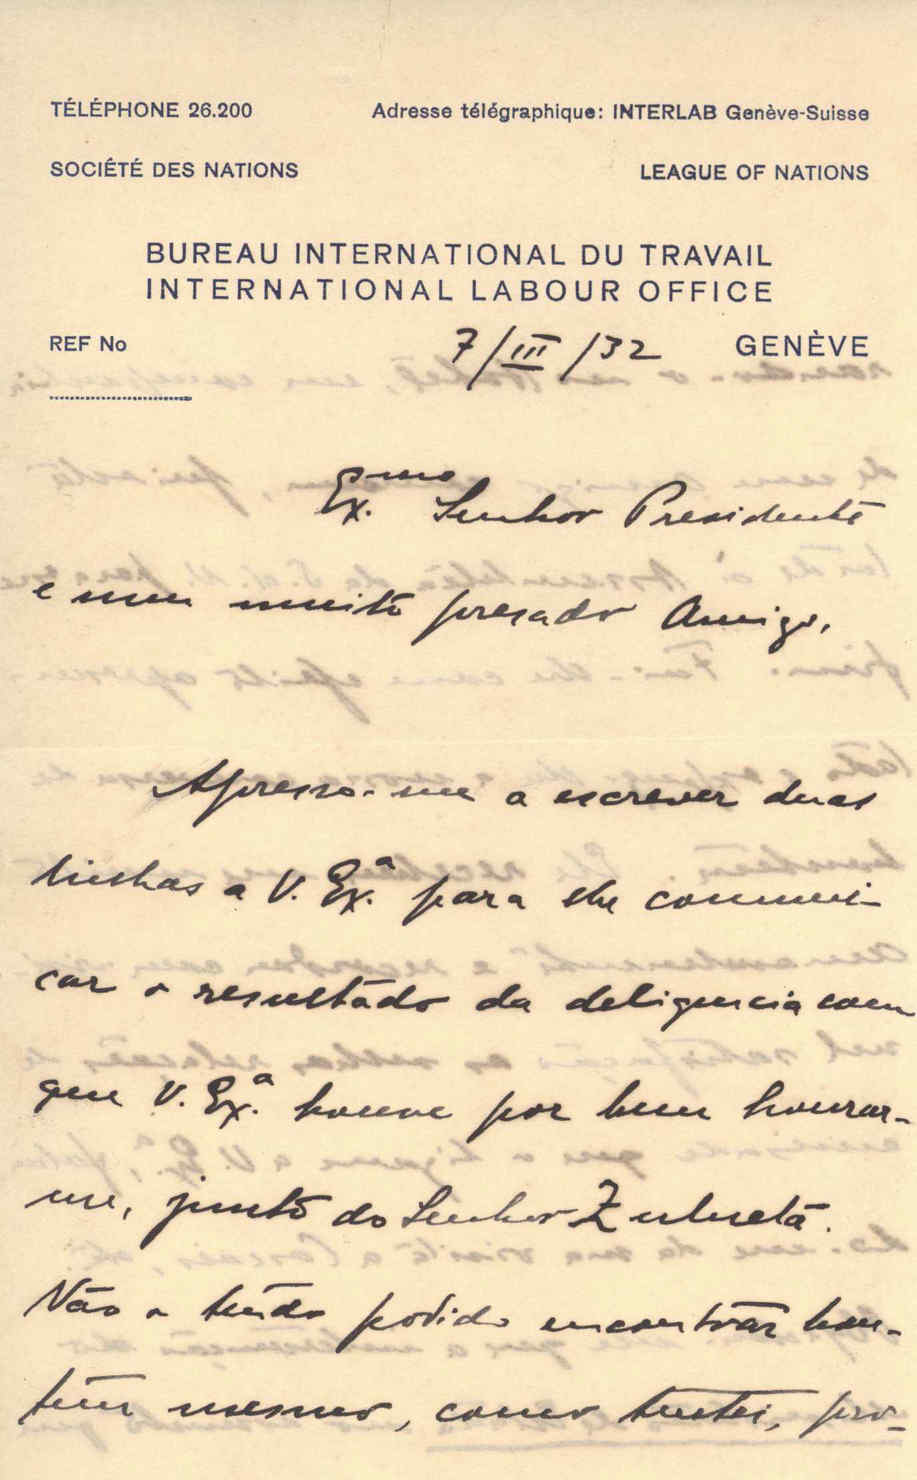 TÉLÉPHONE 26.200 Adresse télégraphique: INTERLAB Genève-Suisse
SOCIÉTÉ DES NATIONS LEAGUE OF NATIONS
BUREAU INTERNATIONAL DU TRAVAIL
INTERNATIONAL LABOUR OFFICE
REF No 7/III/32 GENÈVE
Exmo. Senhor Presidente
e meu muito presado Amigo,
Apresso-me a escrever duas
linhas a V. Exª. para lhe communi-
car o resultado da deligencia com
que V. Exª. houve por bem honrar-
me, junto do Senhor Zulueta.
Não o tendo podido encontrar hon-
tem mesmo, como tentei, pro-